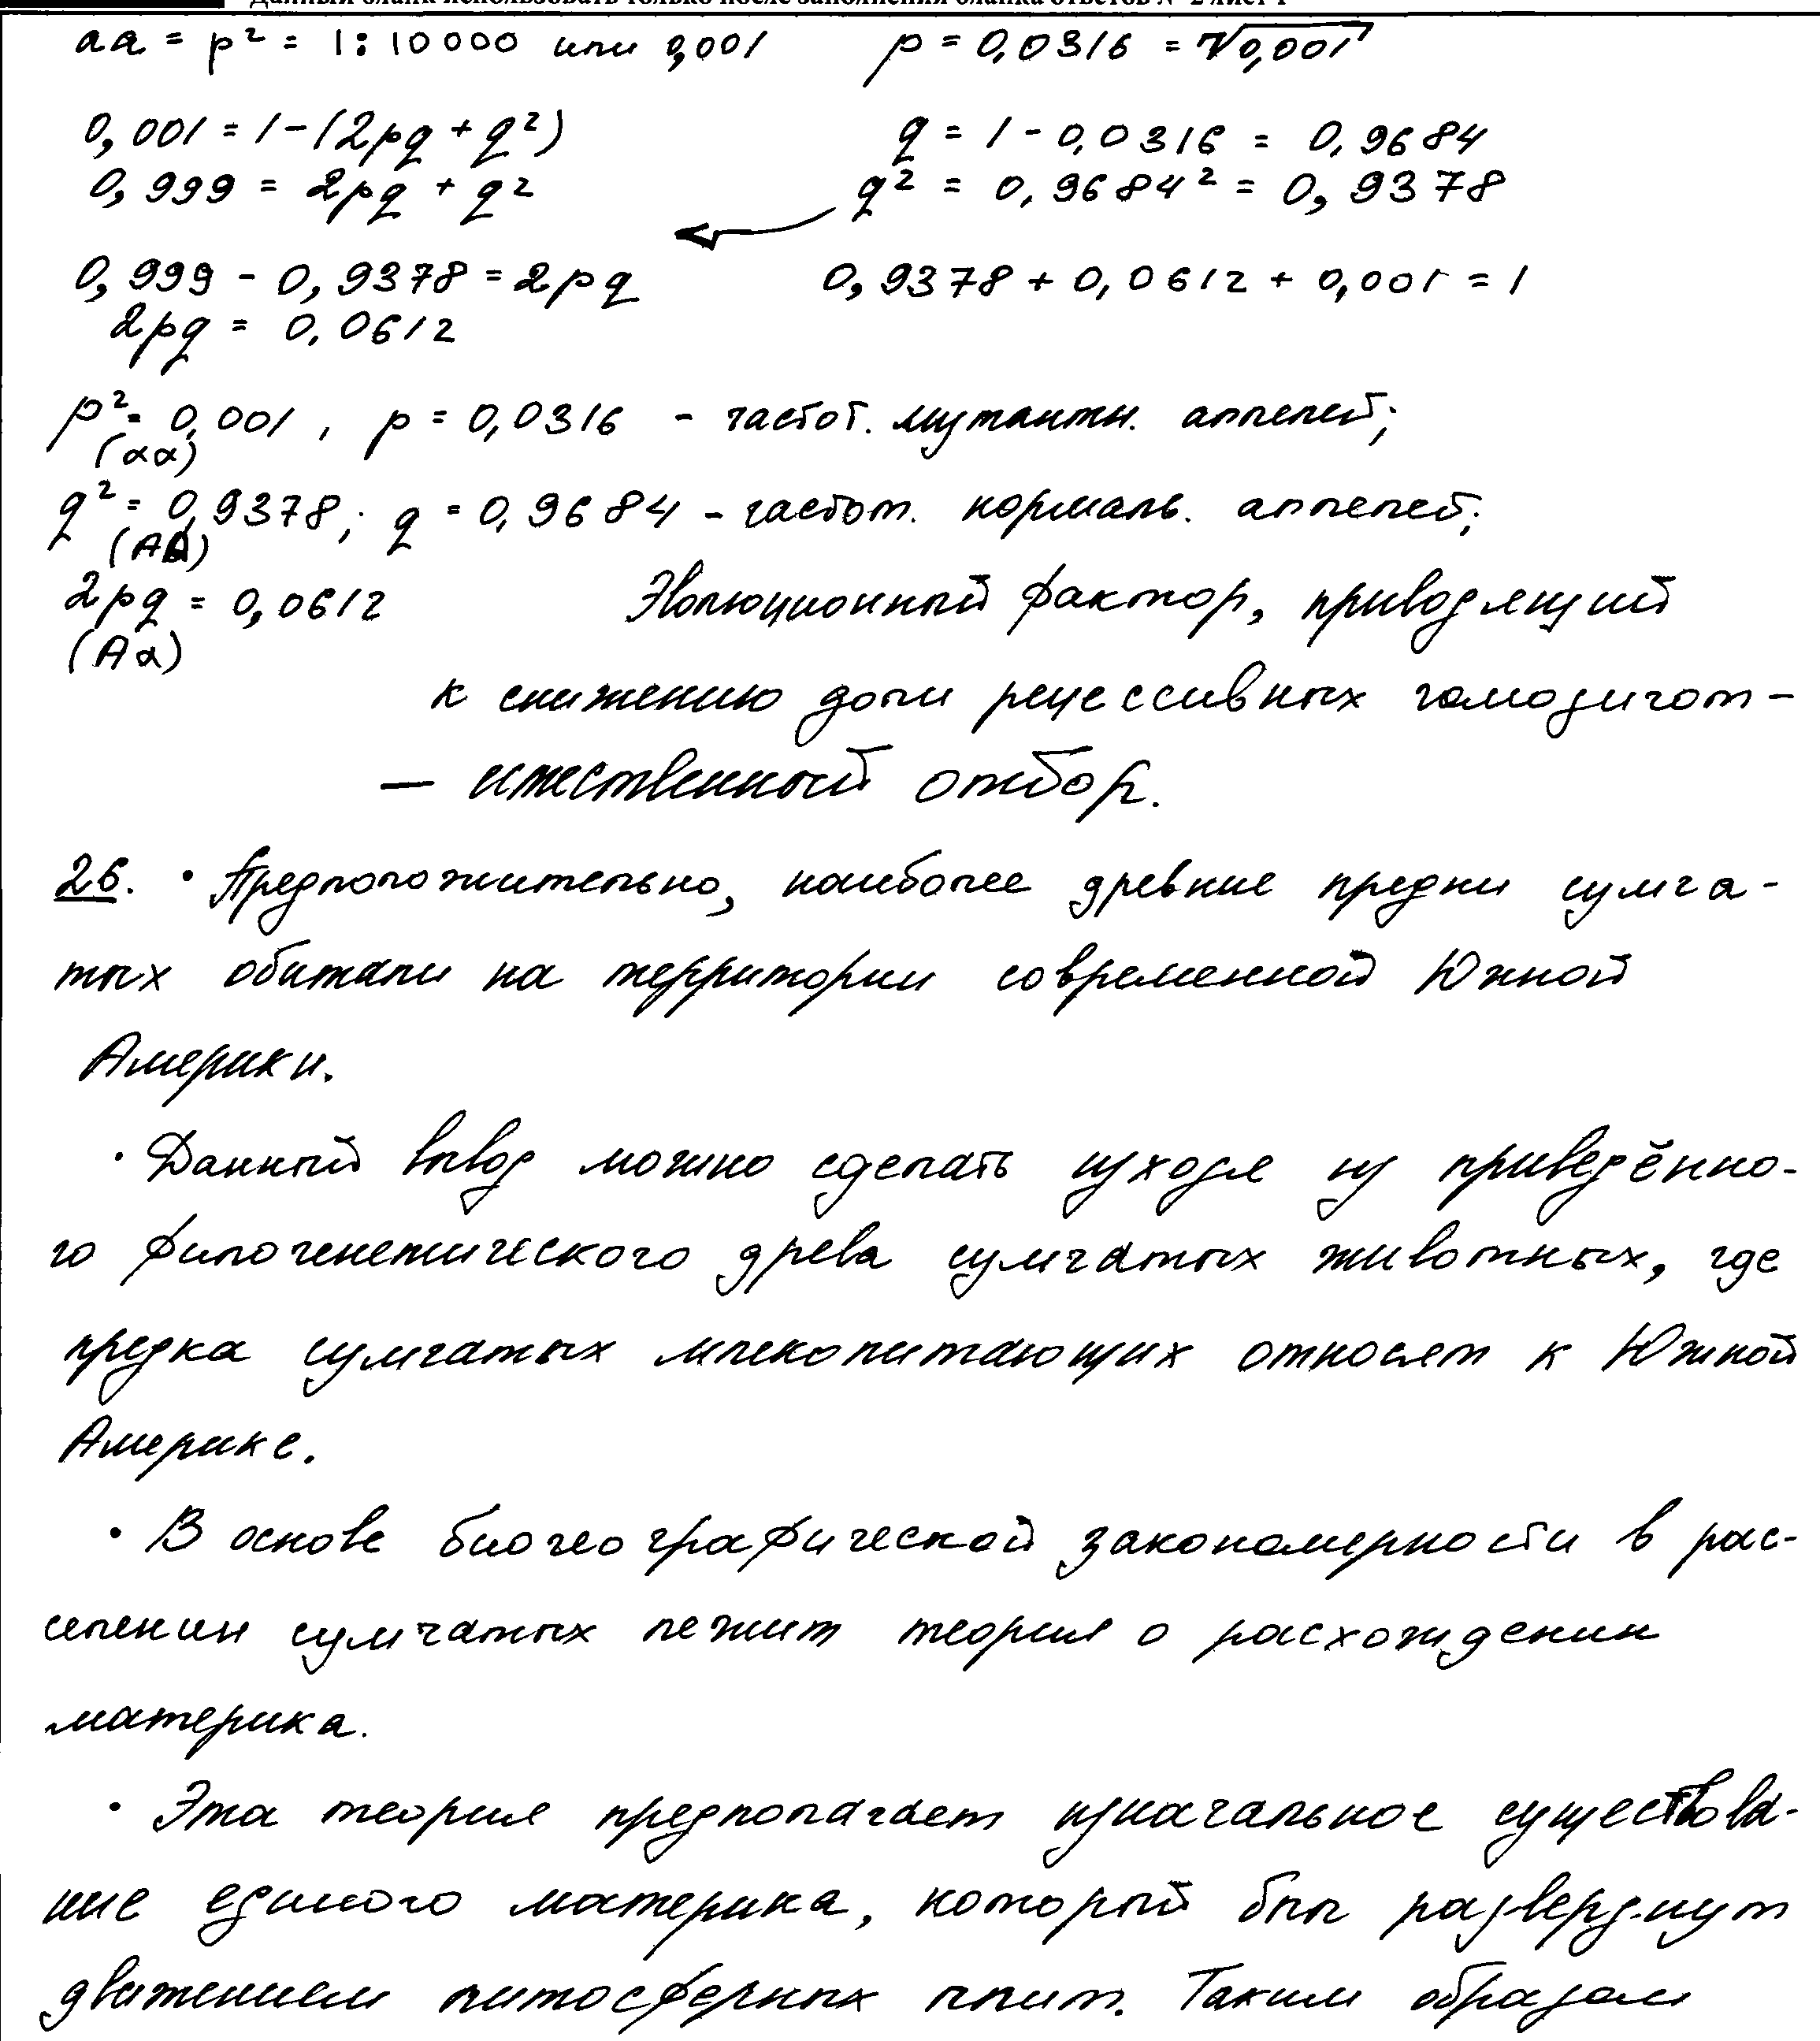 Данный бланк использовать только после заполнения бланка ответов № 2 лист 1
aa = p² = 1:10000 или 0,001 p = 0,0316 = √0,001
0,001 = 1 - (2pq + q²) q = 1 - 0,0316 = 0,9684
0,999 = 2pq + q² q² = 0,9684² = 0,9378
0,999 - 0,9378 = 2pq 0,9378 + 0,0612 + 0,001 = 1
2pq = 0,0612
p² = 0,001, p = 0,0316 - частот. мутантн. аллелей;
(aa)
q² = 0,9378; q = 0,9684 - частот. нормаль. аллелей;
(AA)
2pq = 0,0612 Эволюционный фактор, приводящий
(Aa)
к снижению доли рецессивных гомозигот -
- естественный отбор.
26. • Предположительно, наиболее древние предки сумча-
тых обитали на территории современной Южной
Америки.
• Данный вывод можно сделать исходя из приведённо-
го филогенетического древа сумчатых животных, где
предка сумчатых млекопитающих относят к Южной
Америке.
• В основе биогеографической закономерности в рас-
селении сумчатых лежит теория о расхождении
материка.
• Эта теория предполагает изначальное существова-
ние единого материка, который был разверзнут
движением литосферных плит. Таким образом